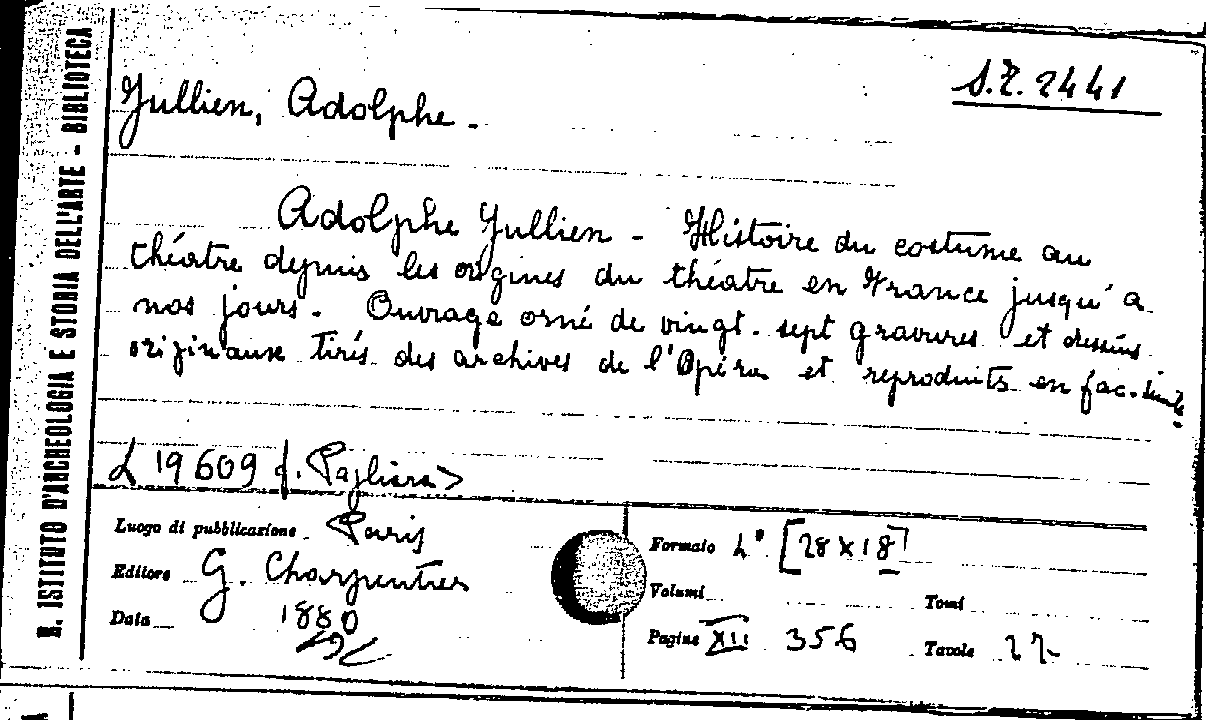 R. ISTITUTO D'ARCHEOLOGIA E STORIA DELL'ARTE - BIBLIOTECA
S.Z. 2441
Jullien, Adolphe.
Adolphe Jullien - Histoire du costume au
théatre depuis les origines du théatre en France jusqu'à
nos jours. Ouvrage orné de vingt-sept gravures et dessins
originaux tirés des archives de l'Opéra et reproduits en fac-simile
19609 f. Pagliara>
Luogo di pubblicazione Paris
Editore G. Charpentier
Data 1880
Formato 4° [28x18]
Volumi
Tomi
Pagine XII 356
Tavole 27